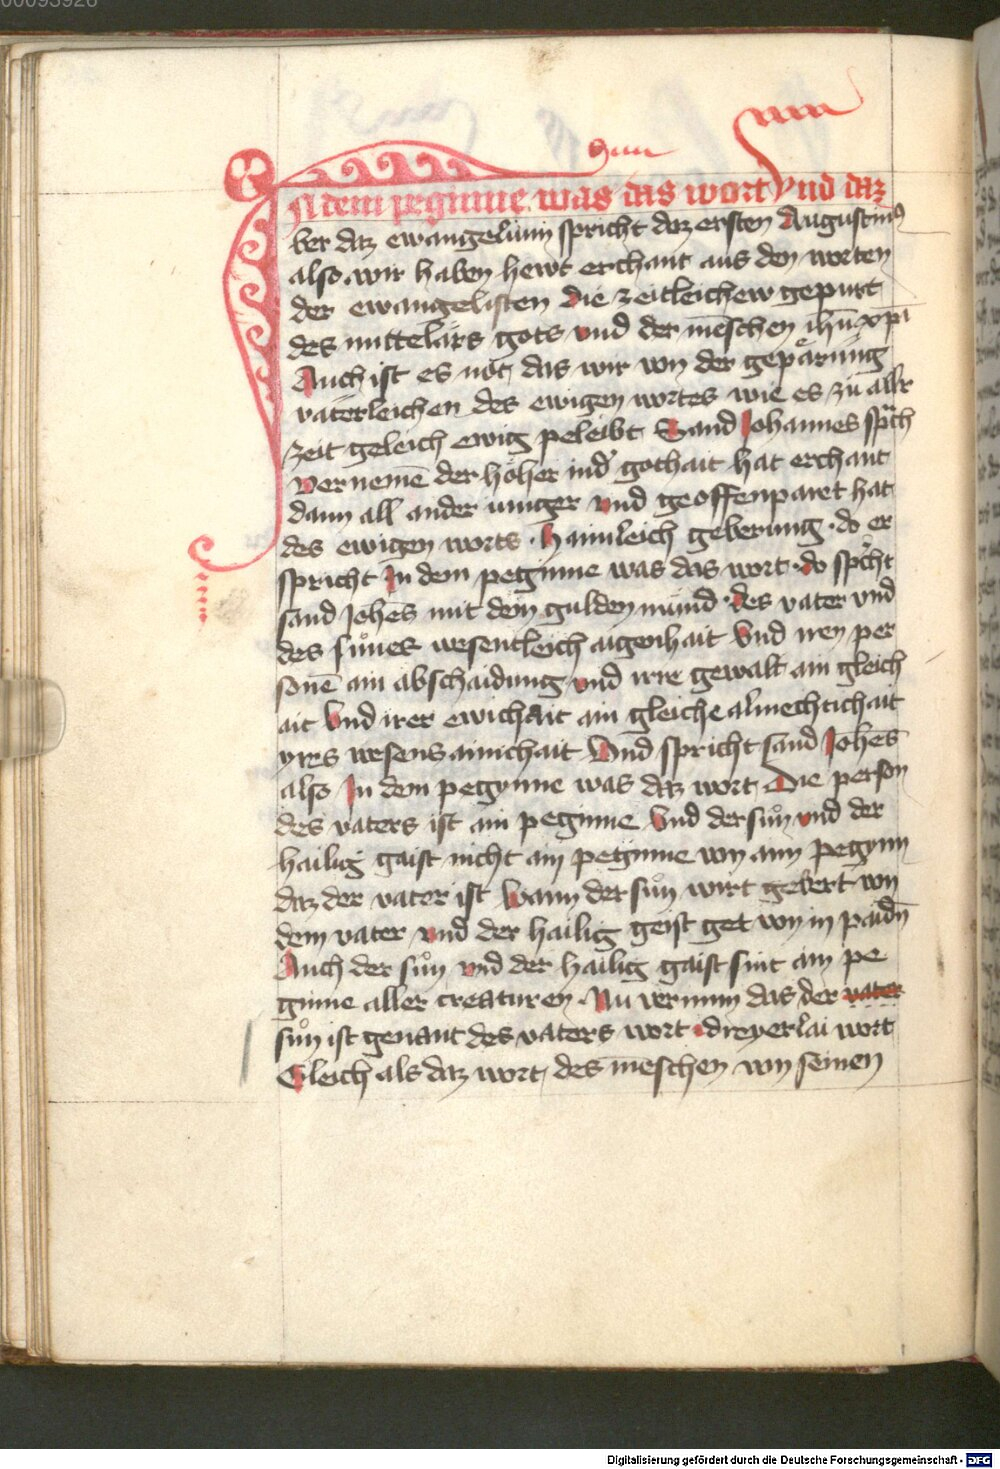 00093926
In dem peginne was das wort Vnd daz
ber daz ewangelium spricht daz ersten Augustinus
also wir haben hewt erchant aus den worten
der ewangelisten die zeitleichew gepurt
des mittelärs gots vnd der mēschen ihū xpī
Auch ist es nöt das wir von der gepärung
väterleichen des ewigen wortes wie es zu aller
zeit geleich ewig peleibt Sand Johannes sprach
vernemē der höher ind gothait hat erchant
dann all ander iunger vnd geoffenparet hat
des ewigen worts haimleich geberung do er
spricht In dem peginne was das wort do spcht
sand Johēs mit dem gulden mund des vater vnd
des suones wesentleich aigenhait Vnd iren per
sonē ain abschaidung vnd irre gewalt ain gleich
ait Vnd irer ewichait ain gleiche almechtichait
yrs wesens ainichait Vnd spricht sand Johēs
also In dem pegynne was daz wort Die person
des vaters ist ain peginne Vnd der suon vnd der
hailig gaist nicht ain peginne von aim pegynn
daz der vater ist Wann der suon wirt gebert von
dem vater vnd der hailig geist get von in paidn̄
Auch der suon vnd der hailig gaist sint ain pe
ginne aller creaturen Nu vernim das der vater
suon ist genant des vaters wort dreyerlai wort
Gleich als daz wort des mēschen von seinen
Digitalisierung gefördert durch die Deutsche Forschungsgemeinschaft - DFG